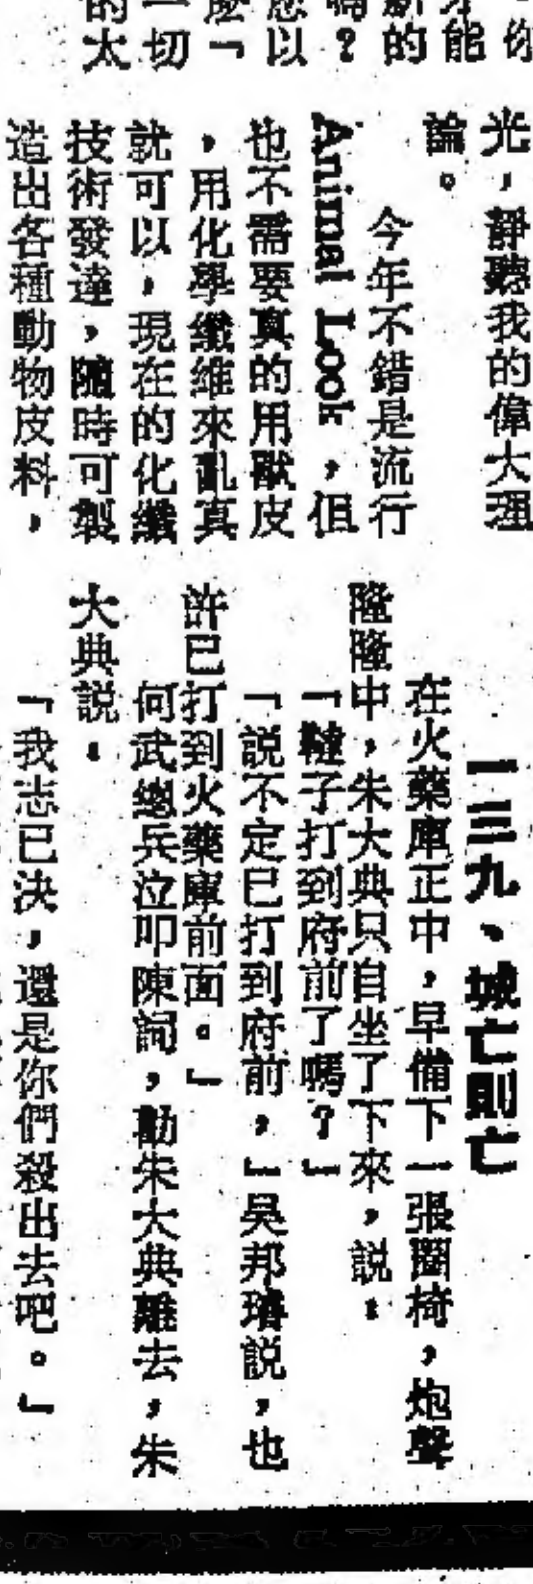 你
才能
新的
嗎?
您以
麼「
一切
的太
光,靜聽我的偉大理
論。
今年不錯是流行
Animal Look,但
也不需要真的用獸皮
,用化學纖維來亂真
就可以,現在的化纖
技術發達,隨時可製
造出各種動物皮料,
一三九、城亡則亡
在火藥庫正中,早備下一張圈椅,炮聲
隆隆中,朱大典只自坐了下來,説:
「韃子打到府前了嗎?」
「説不定已打到府前,」吳邦璿説,也
許已打到火藥庫前面。」
何武總兵泣叩陳詞,勸朱大典離去,朱
大典説:
「我志已決,還是你們殺出去吧。」